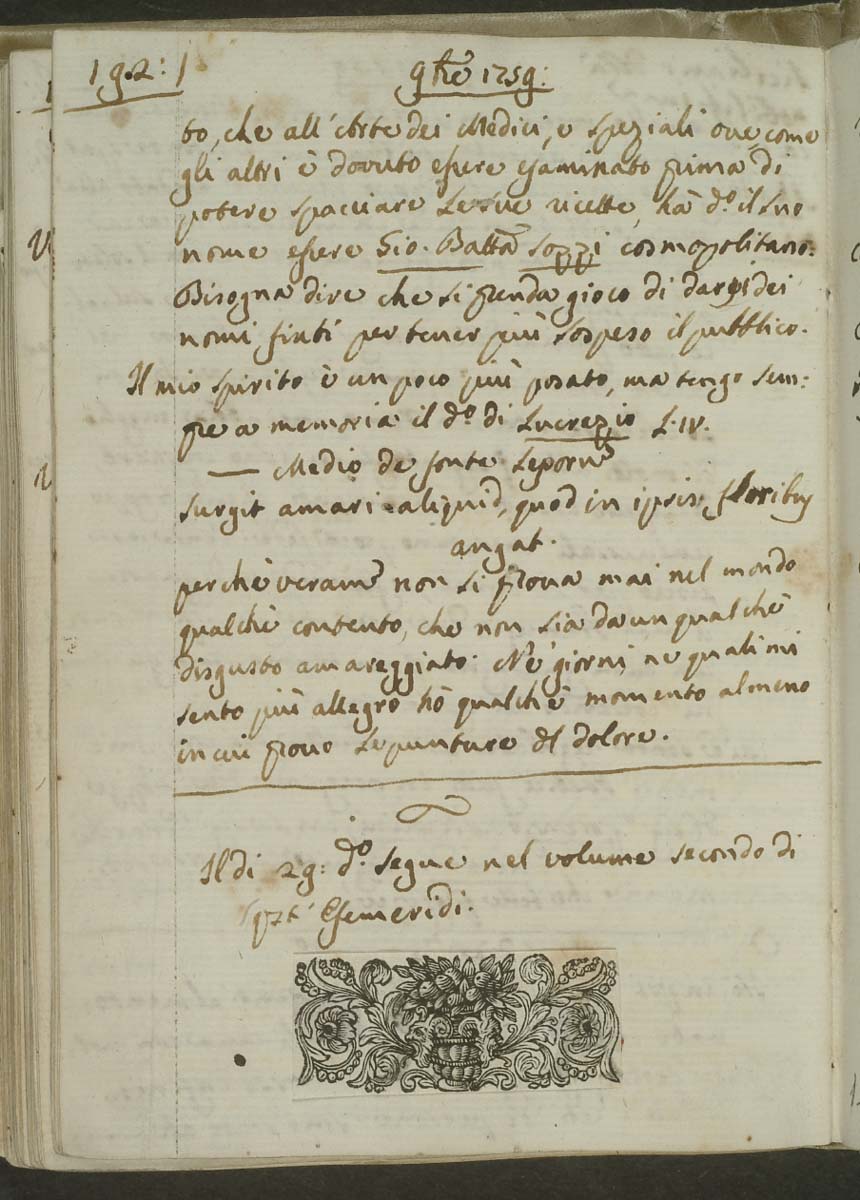 192:
9bre 1759:
to, che all'Arte dei Medici, e speziali ove, come
gli altri è dovuto essere esaminato prima di
potere spacciare le sue ricette, ha d.º il suo
nome essere Gio. Batta Sozzi cosmopolitano:
Bisogna dire che si prenda gioco di darsi dei
nomi finti per tener più sospeso il pubblico.
Il mio spirito è un poco più posato, ma tengo sem:
pre a memoria il d.º di Lucrezio L. IV.
— Medio de fonte Leporum
surgit amari aliquid, quod in ipsis floribus
angat.
perchè veramᵉ non si prova mai nel mondo
qualchè contento, che non sia da un qualchè
disgusto amareggiato. Ne' giorni, ne quali mi
sento più allegro hò qualchè momento almeno
in cui provo le punture del dolore.
Il di 29: d.º segue nel volume secondo di
Efemeridi.